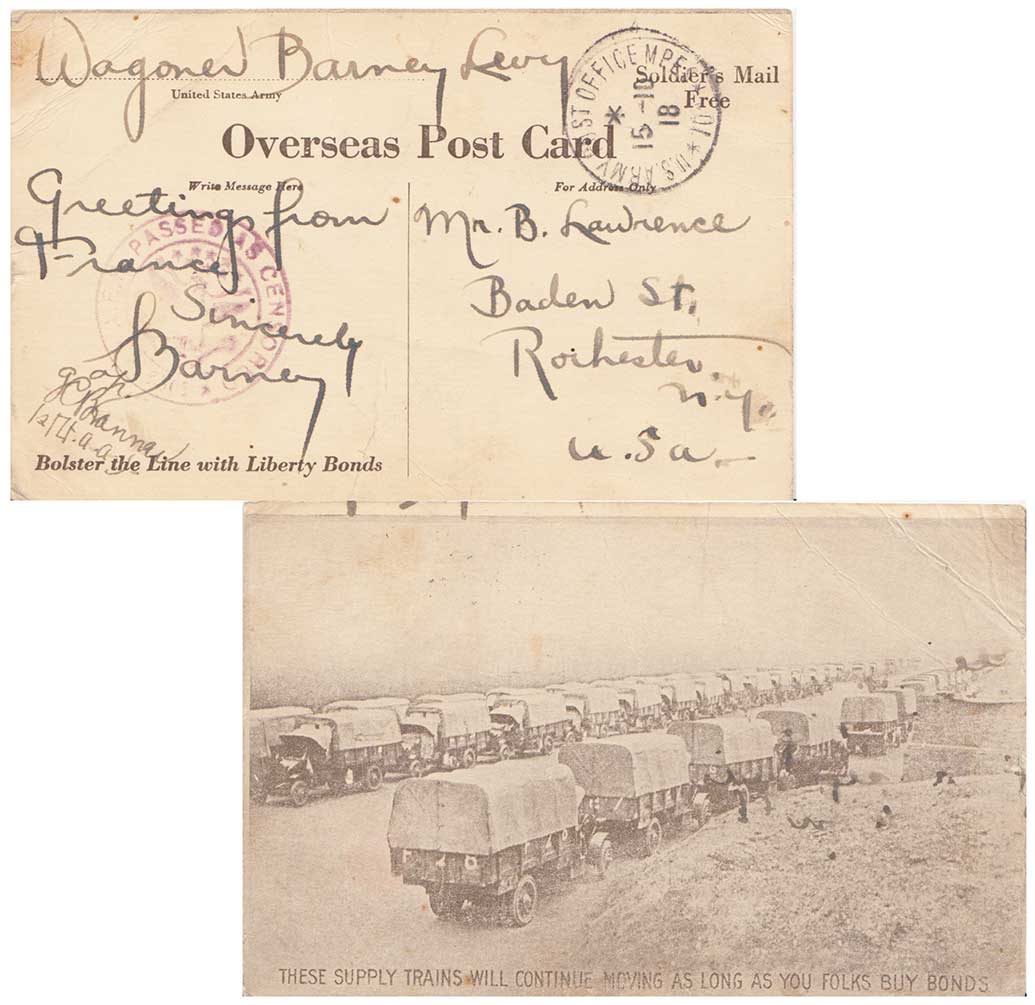 Wagoner Barney Levy
United States Army
Soldier's Mail
Free
ARMY POST OFFICE MPES * 701 * U.S.
* 15-10 18
Overseas Post Card
Write Message Here
For Address Only
Greetings from
France
Sincerely
Barney
PASSED AS CENSORED
Mr. B. Lawrence
Baden St.
Rochester,
N.Y.
U.S.A.
Bolster the Line with Liberty Bonds
THESE SUPPLY TRAINS WILL CONTINUE MOVING AS LONG AS YOU FOLKS BUY BONDS